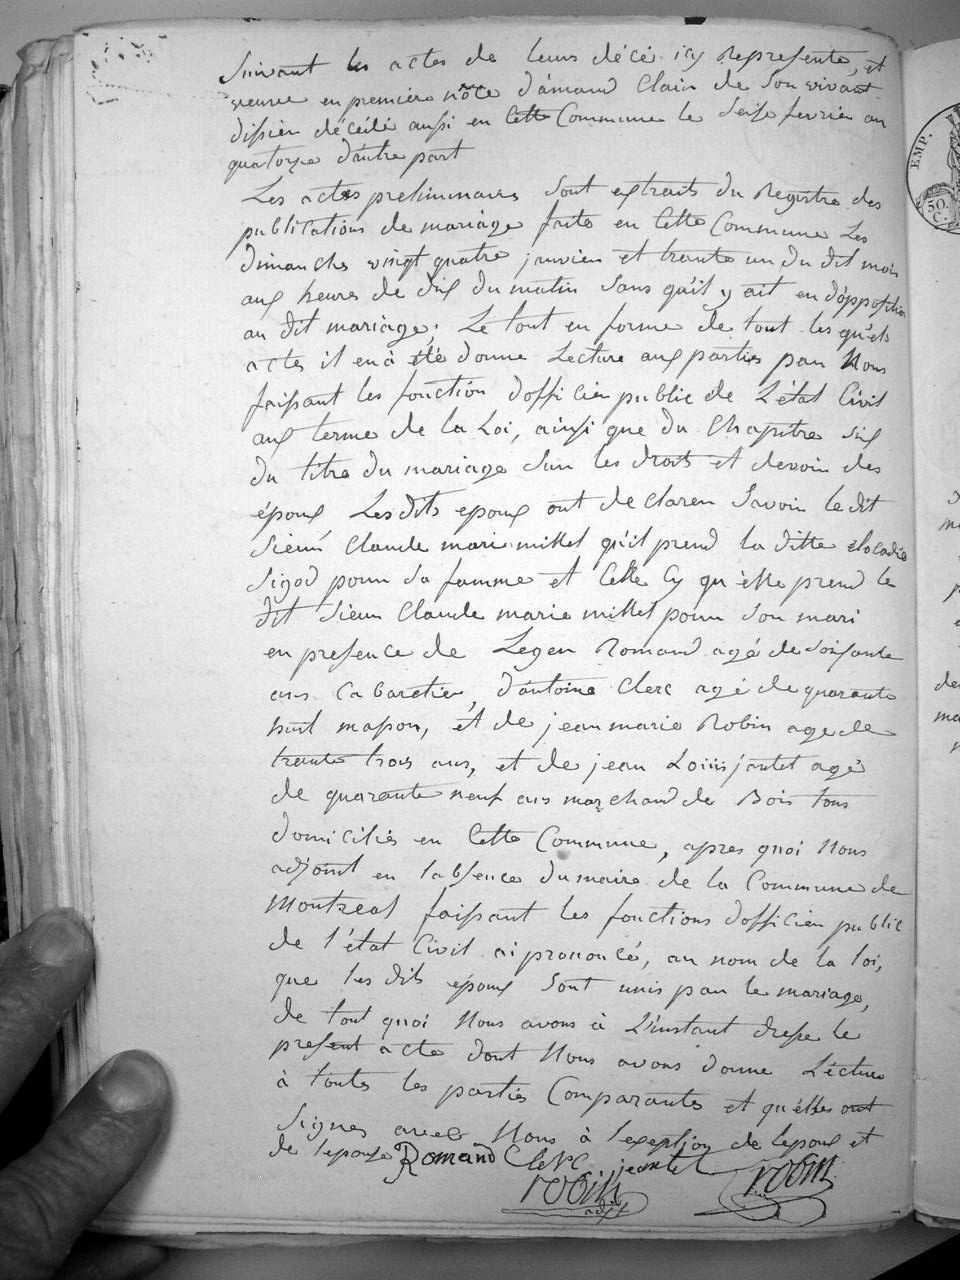 Suivant les actes de leurs décé icy Represente, et
veuve en premiere nôce d'amand Clair de Son vivant
decedé aussi en Cette Commune le Seise fevrier an
quatorze d'autre part
Les actes preliminaire Sont extraits du Registre des
publications de mariage faite en Cette Commune Les
dimanches vingt quatre janvier et trante un du dit mois
aux heures de dix du matin Sans qu'il y ait eu d'opposition
au dit mariage; Le tout en forme de tout les quels
actes il en à été donne Lecture aux parties par Nous
faisant les fonction d'officier public de L'état Civil
aux terme de la Loi, ainsi que du Chapitre Six
du titre du mariage Sur les droits et devoir des
époux Les dits epoux ont declarer Savoir le dit
Sieur Claude marie millet qu'il prend la ditte élocadie
Sigod pour Sa famme et Celle Cy qu'elle prend le
dit Sieur Claude marie millet pour Son mari
en presence de Leger Romand agé de Soisante
ans Cabaretier, d'antoine Clerc agé de quarante
huit masson, et de jean marie Robin age de
trante trois ans, et de jean Louis jantet agé
de quarante neuf ans marchand de Bois tous
domiciliés en Cette Commune, apres quoi Nous
adjoint en l'absence du maire de la Commune de
Montreal faisant les fonctions d'officier public
de l'état Civil ai prononcé, au nom de la loi,
que les dits époux Sont unis par le mariage,
de tout quoi Nous avons à L'instant dresse le
present acte dont Nous avons donne Lécture
à toutes les parties Comparantes et qu'elles ont
Signes avec Nous à l'exeption de lepoux et
de lepouse Romand Clerc jeantet robin
robin
adjt
EMP.
50.
C.